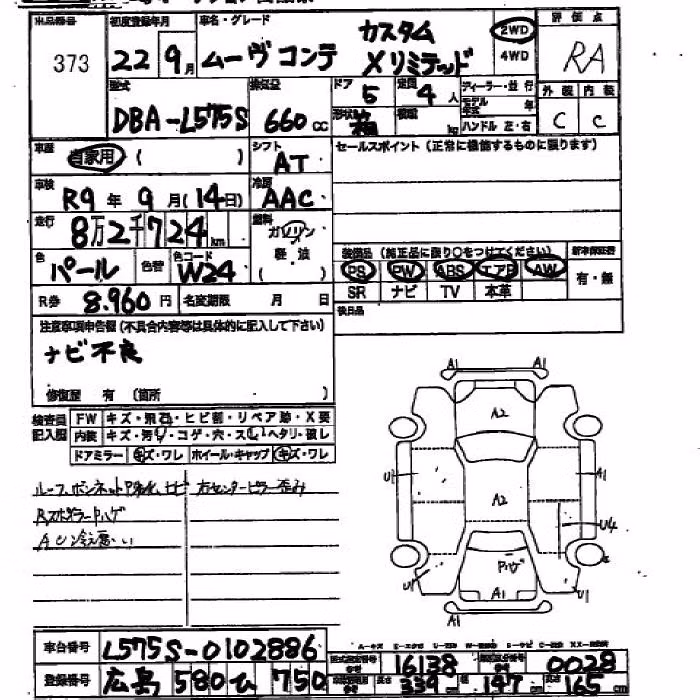 出品番号 初度登録年月 車名・グレード カスタム 2WD 評価点
373 22 9月 ムーヴ コンテ Xリミテッド 4WD RA
型式 排気量 ドア 定員 ディーラー・並行 外装 内装
DBA-L575S 660cc 5 4人 モデル年式 年 C C
形状 箱 積載 kg ハンドル 左・右
車歴 自家用 ( ) シフト AT セールスポイント (正常に機能するものに限ります)
車検 R9年 9月(14日) 冷房 AAC
走行 8万2千724km 燃料 ガソリン
軽油
( )
色 パール 色替 色コード W24
装備品 (純正品に限り○をつけてください) 新車保証書
PS PW ABS エアB AW 有・無
SR ナビ TV 本革
R券 8.960円 名変期限 月 日 後日品
注意事項申告欄(不具合内容等は具体的に記入して下さい)
ナビ不良
修復歴 有 (箇所 )
検査員記入欄 FW キズ・飛石・ヒビ割・リペア跡・X要
内装 キズ・汚れ・コゲ・穴・スレ・ヘタリ・破し
ドアミラー キズ・ワレ ホイール・キャップ キズ・ワレ
ルーフ、ボンネット 右センターピラー歪み
Rスポイラーハゲ
A1 A1
A2
U1 A1
A2
U4
ハゲ
U1 A1 U1
A1
車台番号 L575S-0102886
登録番号 広島 580 ひ 750
型式指定番号 16138 0028
長さ 339 幅 147 高さ 165cm